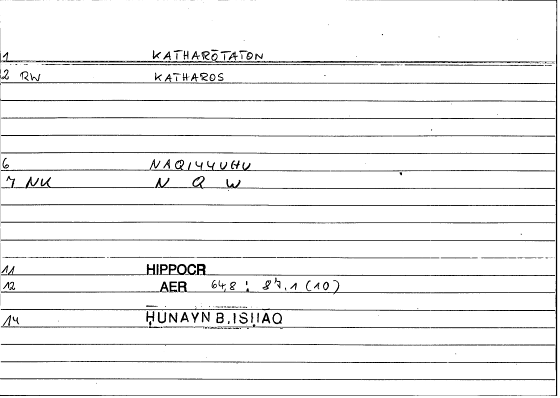 1 KATHARŌTATON
2 RW KATHAROS
6 NAQIYYUHU
7 NK N Q W
11 HIPPOCR
12 AER 64,8 : 87,1 (10)
14 ḤUNAYN B. ISḤAQ